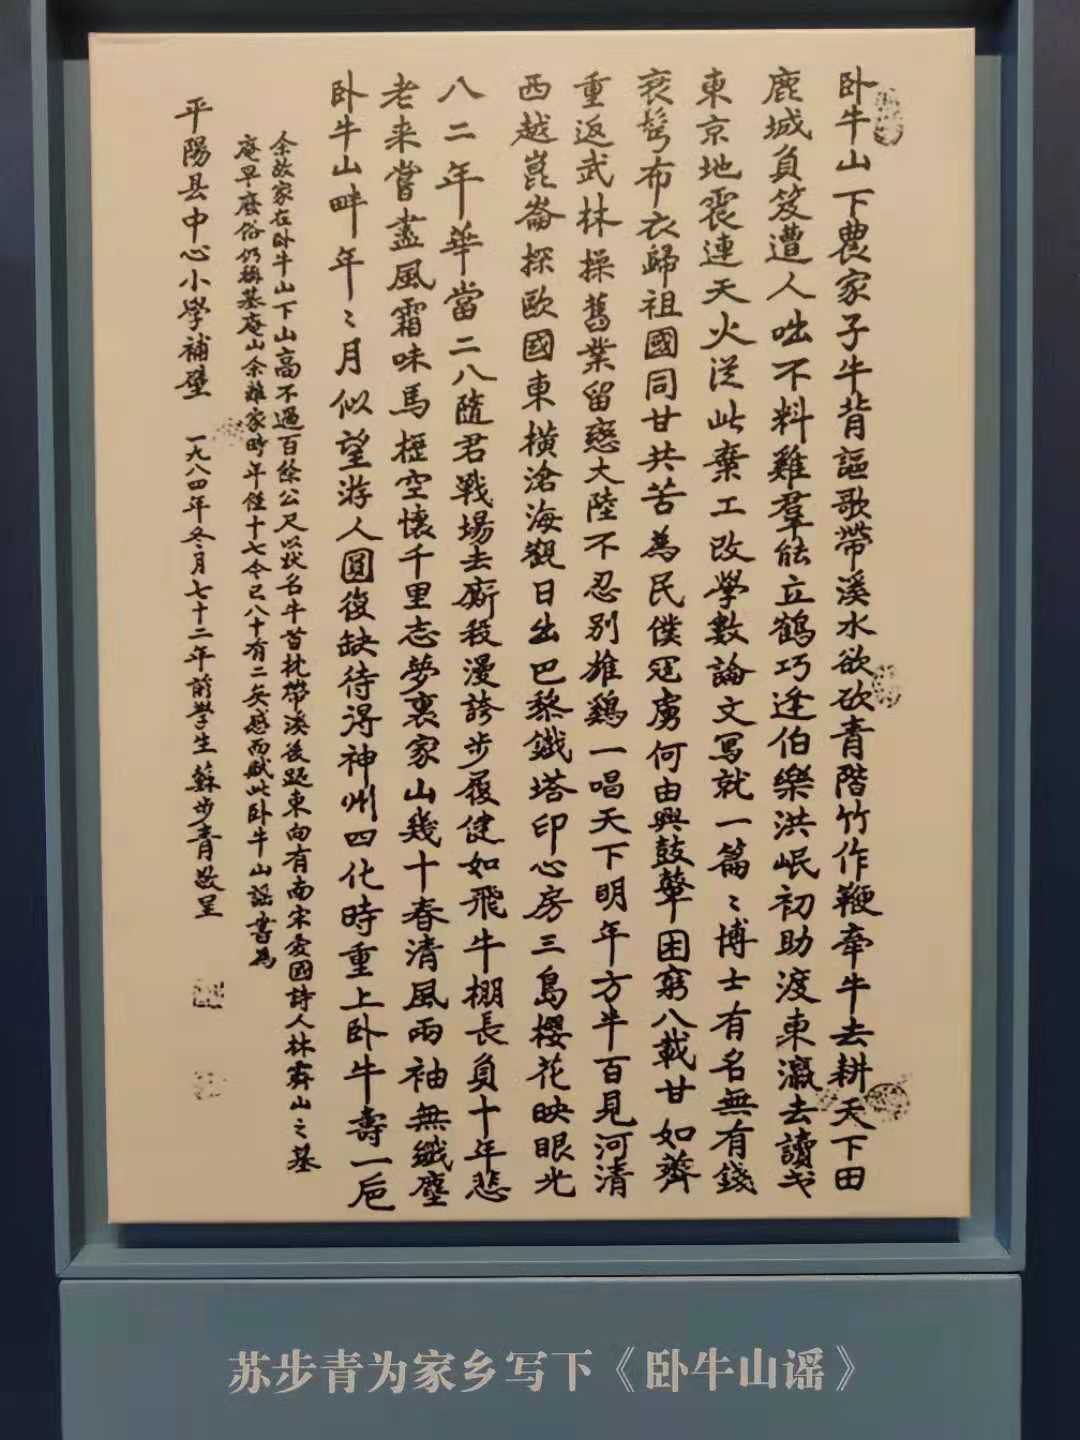 卧牛山下農家子牛背謳歌帶溪水欲砍青階竹作鞭牽牛去耕天下田
鹿城負笈遭人咄不料雞羣能立鶴巧逢伯樂洪岷初助渡東瀛去讀书
東京地震連天火從此棄工改學數論文寫就一篇〻博士有名無有錢
衰髩布衣歸祖國同甘共苦為民僕冦虜何由興鼓鼙困窮八載甘如薺
重返武林操舊業留戀大陸不忍別雄鷄一唱天下明年方半百見河清
西越崑崙探歐國東橫滄海觀日出巴黎鐵塔印心房三島櫻花映眼光
八二年華當二八隨君戰場去廝殺漫誇步履健如飛牛棚長負十年悲
老来嘗盡風霜味馬櫪空懷千里志夢裏家山幾十春清風兩袖無纖塵
卧牛山畔年〻月似望游人圓復缺待得神州四化時重上卧牛壽一卮
余故家在卧牛山下山高不過百餘公尺以狀名牛首枕帶溪後跽東向有南宋愛國詩人林霽山之墓
庵早廢俗仍稱墓庵山余離家時年僅十七今已八十有二矣感而賦此卧牛山謡書為
平陽县中心小學補壁 一九八四年冬月七十二年前學生蘇步青敬呈
苏步青为家乡写下《卧牛山谣》